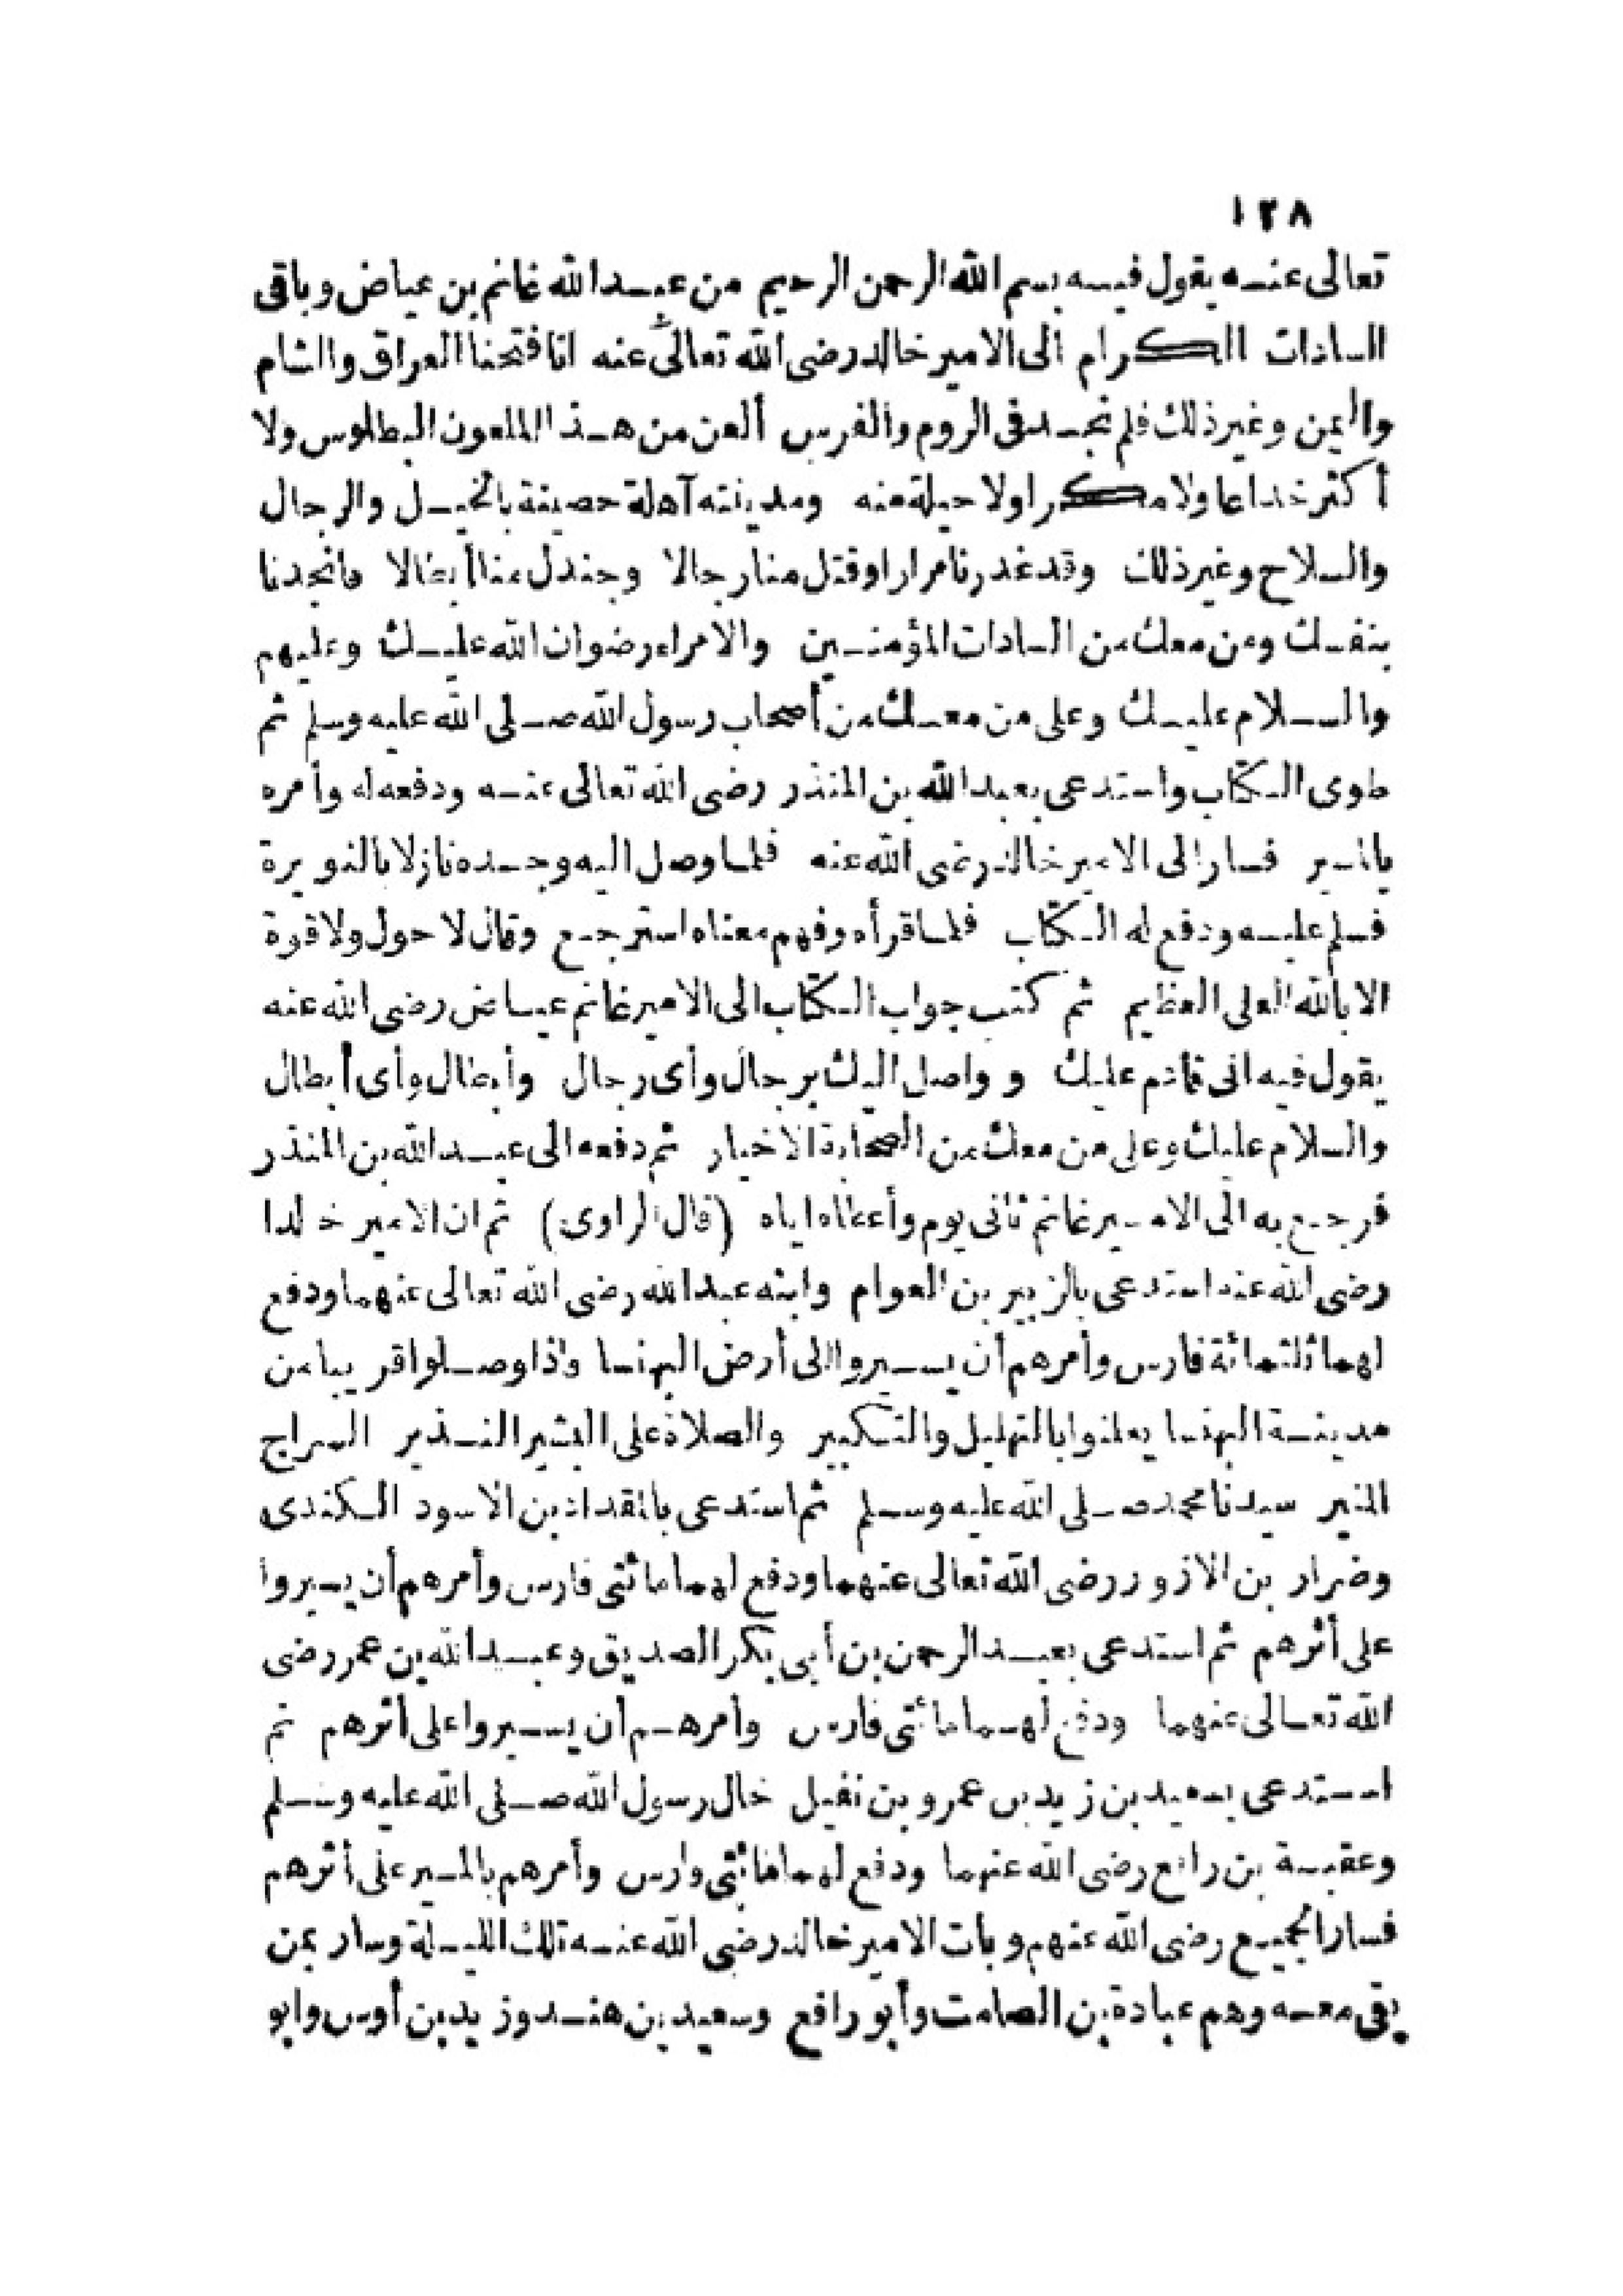 ١٢٨
تعالى عنه يقول فيه بسم الله الرحمن الرحيم من عبد الله غانم بن عياض وباقى
السادات الكرام الى الامير خالد رضى الله تعالى عنه انا فتحنا العراق والشام
واليمن وغير ذلك فلم نجد فى الروم والفرس ألعن من هذا الملعون البطلوس ولا
أكثر خداعا ولا مكرا ولا حيلة منه ومدينته آهلة حصينة بالخيل والرجال
والسلاح وغير ذلك وقد غدرنا مرارا وقتل منا رجالا وجندل منا أبطالا فانجدنا
بنفسك ومن معك من السادات المؤمنين والامراء رضوان الله عليك وعليهم
والسلام عليك وعلى من معك من أصحاب رسول الله صلى الله عليه وسلم ثم
طوى الكتاب واستدعى بعبد الله بن المنذر رضى الله تعالى عنه ودفعه له وأمره
بالمسير فسار الى الامير خالد رضى الله عنه فلما وصل اليه وجده نازلا بالنويرة
فسلم عليه ودفع له الكتاب فلما قرأه وفهم معناه استرجع وقال لا حول ولا قوة
الا بالله العلى العظيم ثم كتب جواب الكتاب الى الامير غانم عياض رضى الله عنه
يقول فيه انى قادم عليك و واصل اليك برجال وأى رجال وأبطال وأى أبطال
والسلام عليك وعلى من معك من الصحابة الاخيار ثم دفعه الى عبد الله بن المنذر
فرجع به الى الامير غانم ثانى يوم وأعطاه اياه (قال الراوى) ثم ان الامير خالدا
رضى الله عنه استدعى بالزبير بن العوام وابنه عبد الله رضى الله تعالى عنهما ودفع
لهما ثلثمائة فارس وأمرهم أن يسيروا الى أرض البهنسا واذا وصلوا قريبا من
مدينة البهنسا يعلنوا بالتهليل والتكبير والصلاة على البشير النذير السراج
المنير سيدنا محمد صلى الله عليه وسلم ثم استدعى بالمقداد بن الاسود الكندى
وضرار بن الازور رضى الله تعالى عنهما ودفع لهما مائتى فارس وأمرهم أن يسيروا
على أثرهم ثم استدعى بعبد الرحمن بن أبى بكر الصديق وعبد الله بن عمر رضى
الله تعالى عنهما ودفع لهما مائتى فارس وأمرهم أن يسيروا على أثرهم ثم
استدعى بسعيد بن زيد بن عمرو بن نفيل خال رسول الله صلى الله عليه وسلم
وعقبة بن رافع رضى الله عنهما ودفع لهما مائتى فارس وأمرهم بالمسير على أثرهم
فسار الجميع رضى الله عنهم وبات الامير خالد رضى الله عنه تلك الليلة وسار بمن
بقى معه وهم عبادة بن الصامت وأبو رافع وسعيد بن هند وزيد بن أوس وابو